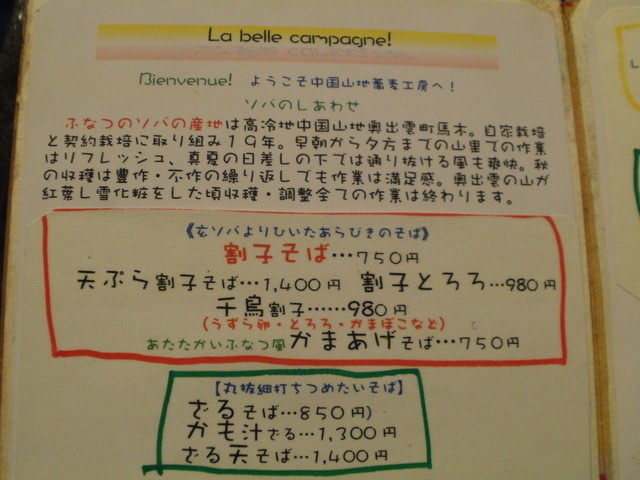 La belle campagne!
Bienvenue! ようこそ中国山地蕎麦工房へ!
ソバのしあわせ
ふなつのソバの産地は高冷地中国山地奥出雲町馬木。自家栽培
と契約栽培に取り組み19年。早朝から夕方までの山里での作業
はリフレッシュ、真夏の日差しの下では通り抜ける風も爽快。秋
の収穫は豊作・不作の繰り返しでも作業は満足感。奥出雲の山が
紅葉し雪化粧をした頃収穫・調整全ての作業は終わります。
《玄ソバよりひいたあらびきのそば》
割子そば…750円
天ぷら割子そば…1,400円 割子とろろ…980円
千鳥割子……980円
(うずら卵・とろろ・かまぼこなど)
あたたかいふなつ風かまあげそば…750円
【丸抜細打ちつめたいそば】
ざるそば…850円)
かも汁ざる…1,300円
ざる天そば…1,400円